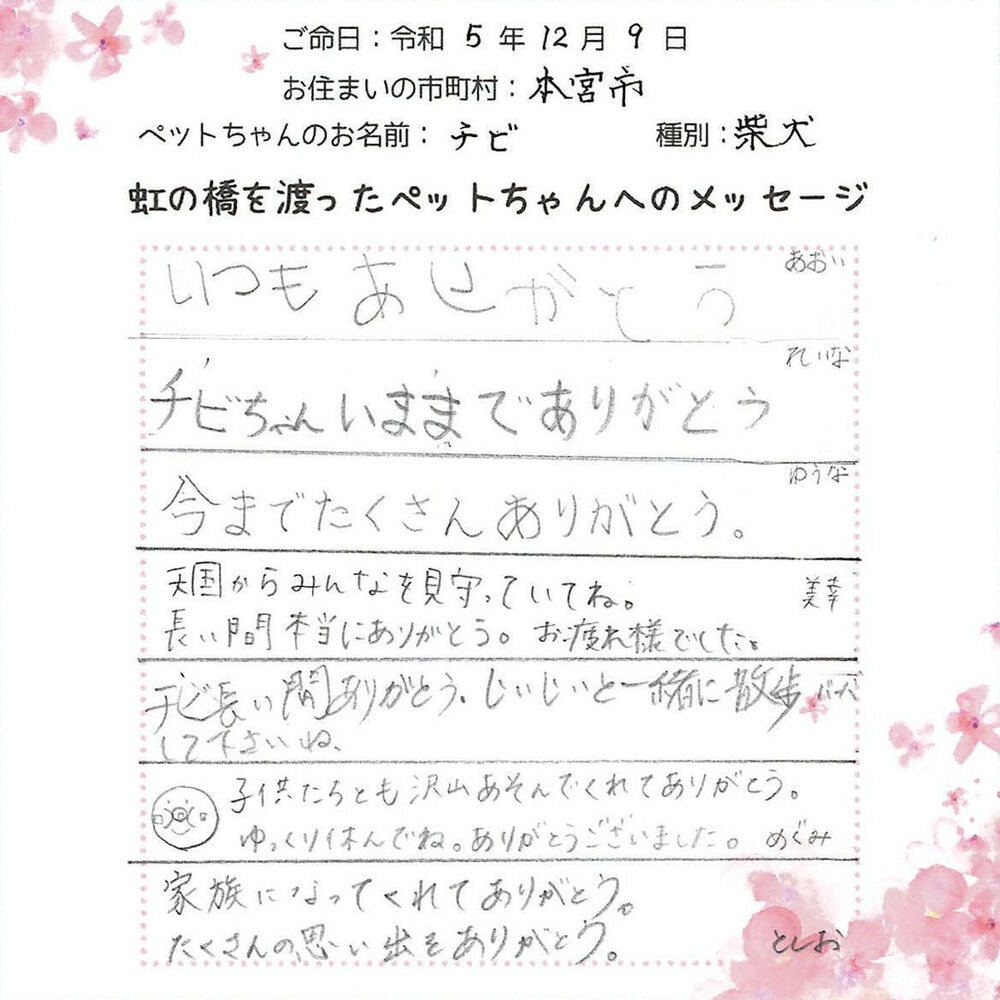 ご命日：令和 5 年 12 月 9 日
お住まいの市町村：本宮市
ペットちゃんのお名前：チビ 種別：柴犬
虹の橋を渡ったペットちゃんへのメッセージ
あおい
いつもありがとう
れいな
チビちゃんいままでありがとう
ゆうな
今までたくさんありがとう。
天国からみんなを見守っていてね。 美幸
長い間本当にありがとう。お疲れ様でした。
チビ長い間ありがとう。じいじいと一緒に散歩 バーバ
して下さいね、
子供たちとも沢山あそんでくれてありがとう。
ゆっくり休んでね。ありがとうございました。 めぐみ
家族になってくれてありがとう。
たくさんの思い出をありがとう。 としお